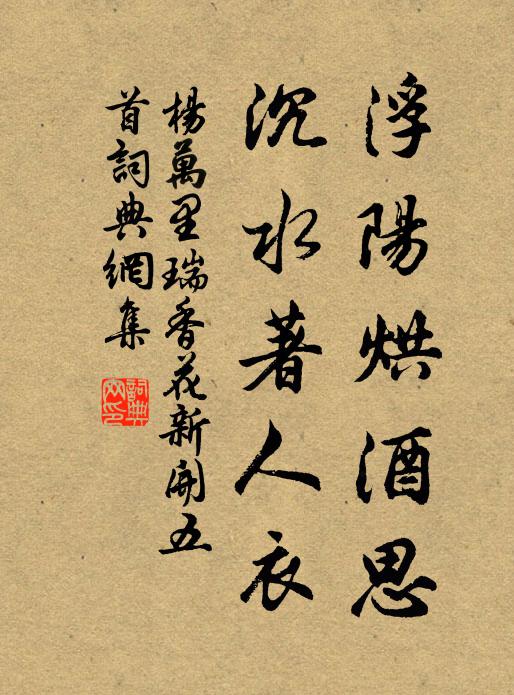 浮陽烘酒思
沉水著人衣
楊萬里瑞香花新開五
首詞典網集
詞典
網印